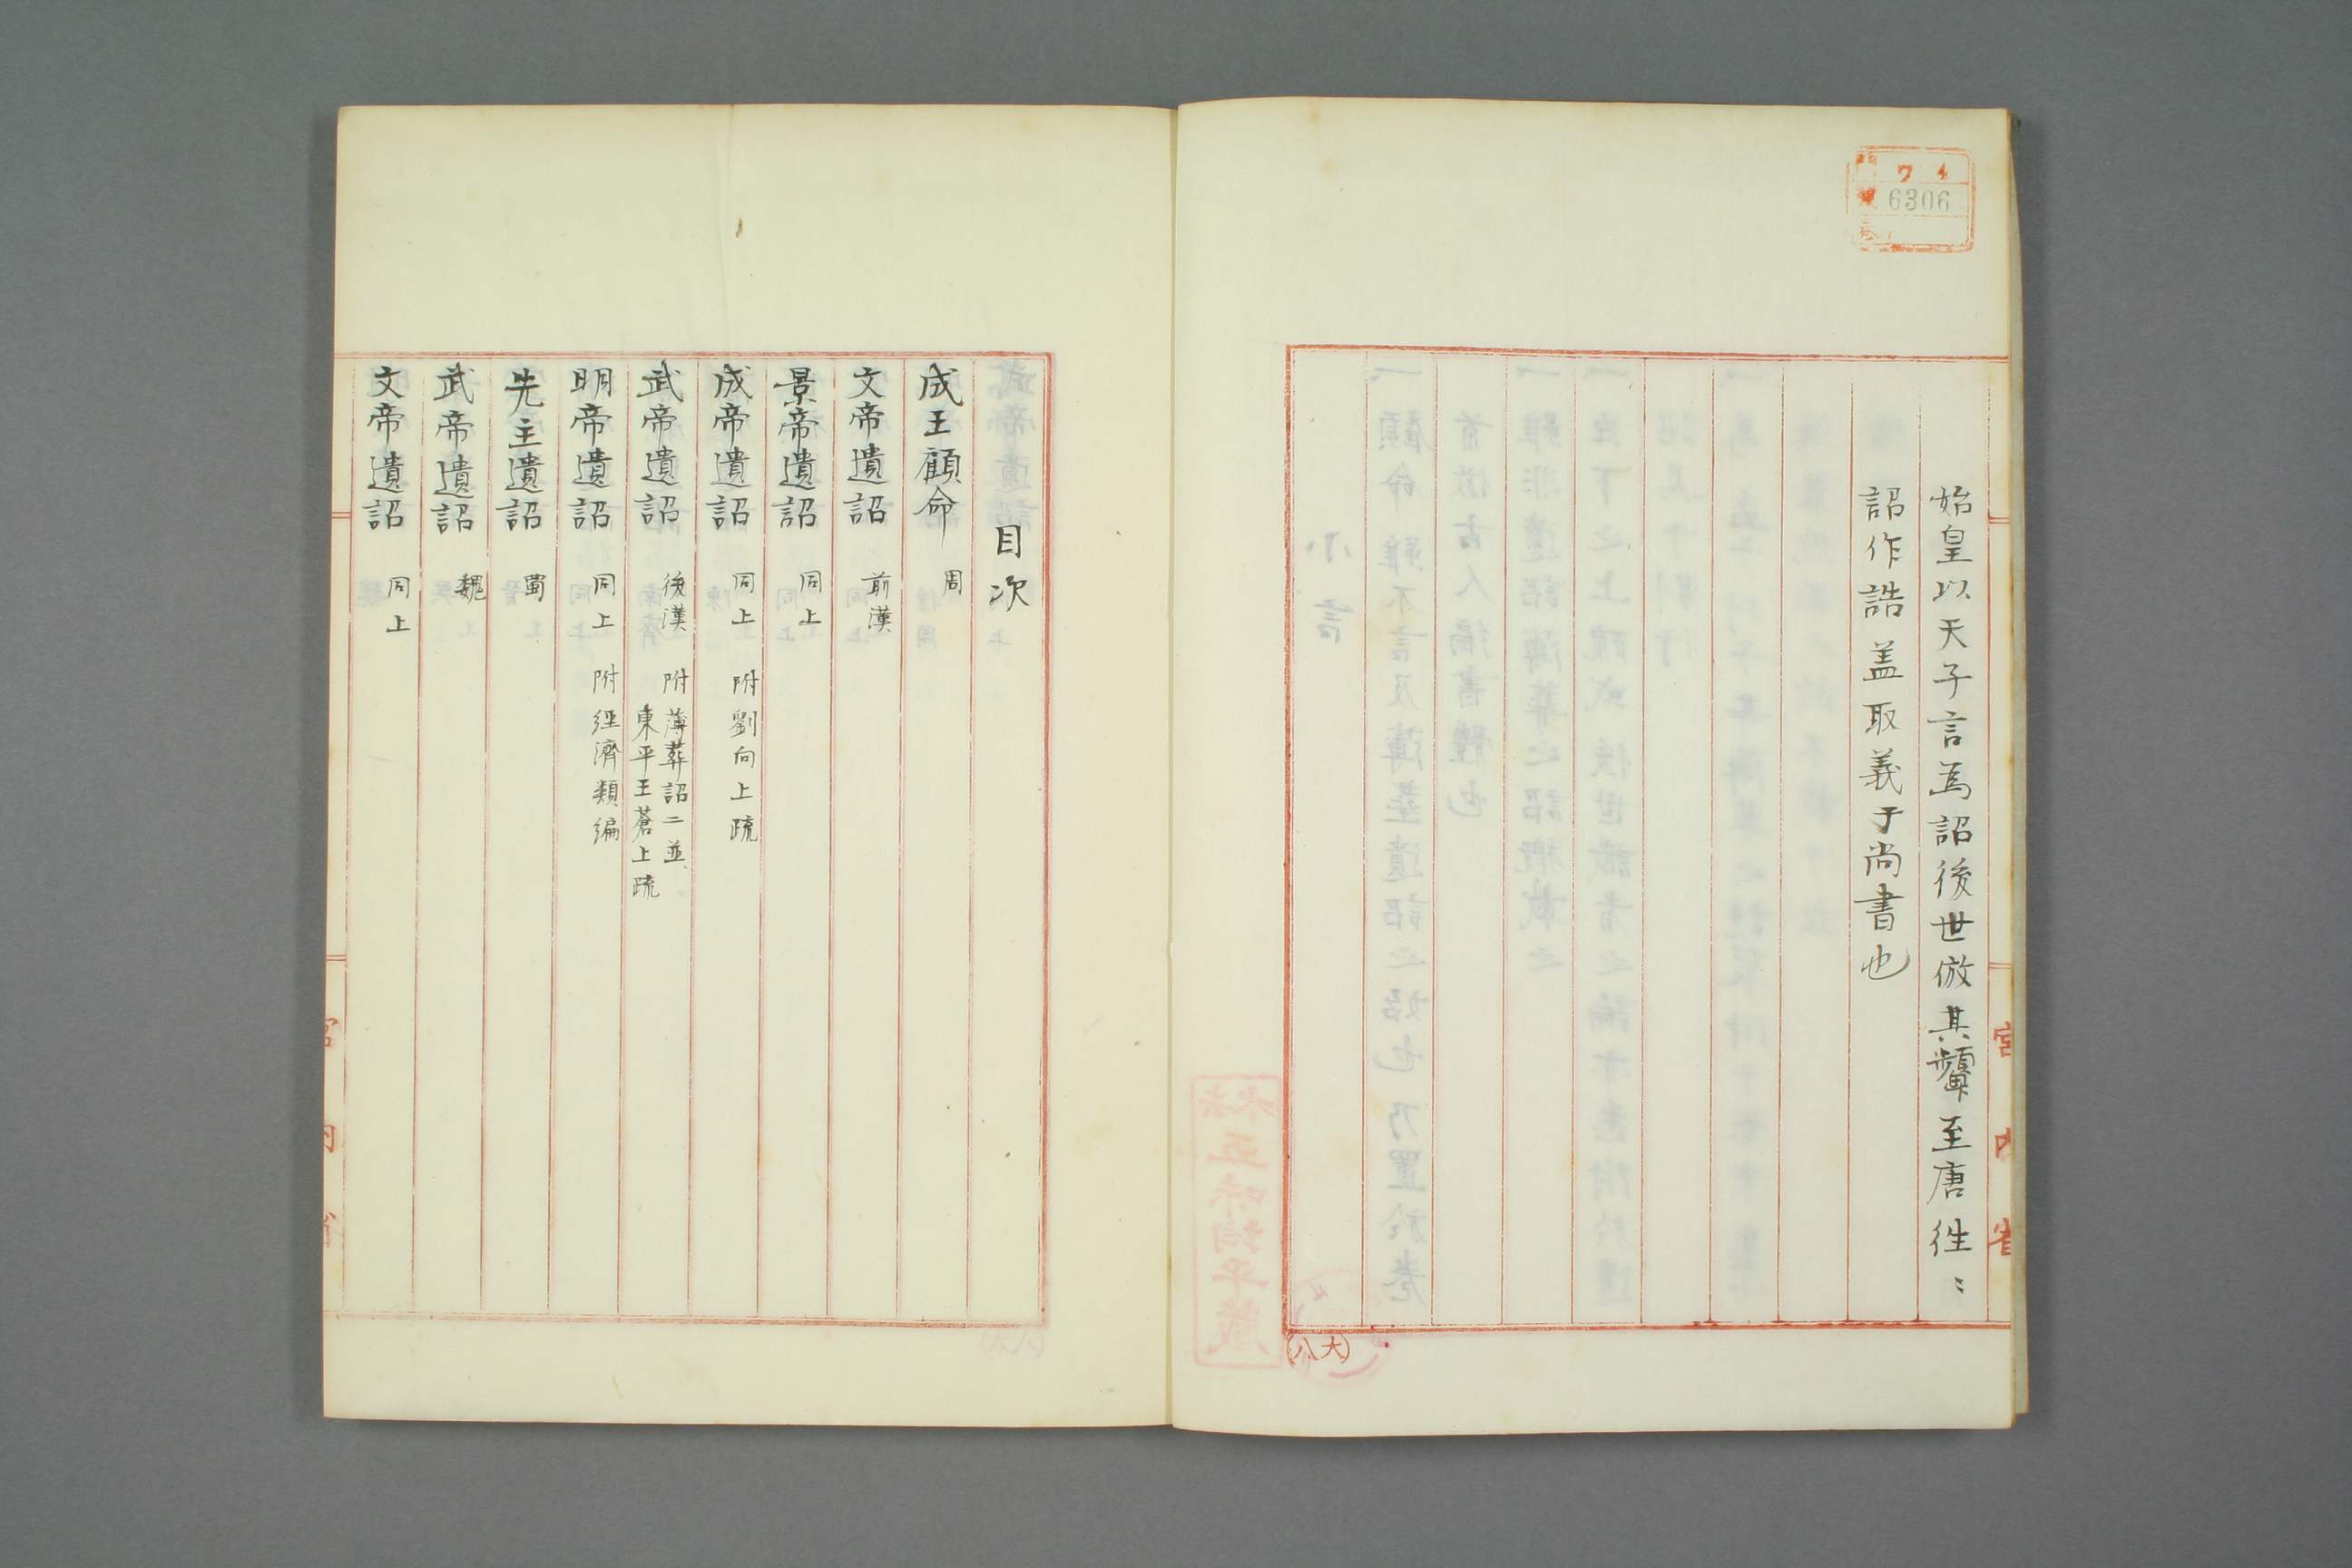 6306
始皇以天子言爲詔後世倣其顰至唐徃〻
詔作誥盖取義于尚書也
宮内省
(大八)
目次
成王顧命 周
文帝遺詔 前漢
景帝遺詔 同上
成帝遺詔 同上 附劉向上疏
武帝遺詔 後漢 附薄葬詔二並
東平王蒼上疏
明帝遺詔 同上 附經濟類編
先主遺詔 蜀
武帝遺詔 魏
文帝遺詔 同上
宮内省